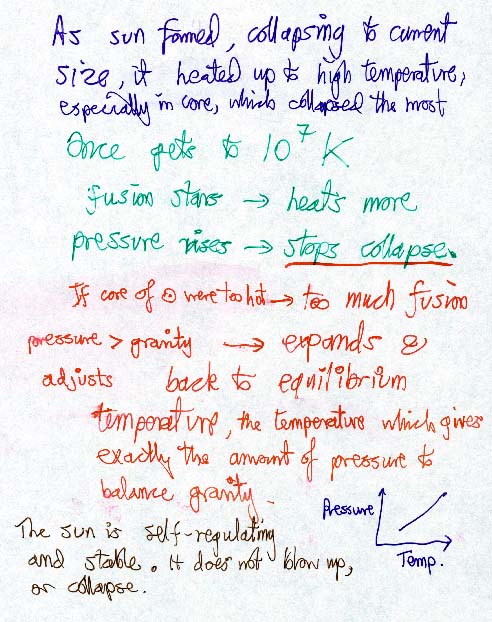 As sun formed, collapsing to current
size, it heated up to high temperature,
especially in core, which collapsed the most
Once gets to 10⁷ K
fusion stars → heats more
pressure rises → stops collapse.
If core of ⊙ were too hot → too much fusion
pressure > gravity → expands &
adjusts back to equilibrium
temperature, the temperature which gives
exactly the amount of pressure to
balance gravity.
The sun is self-regulating
and stable. It does not blow up,
or collapse.
Pressure
Temp.